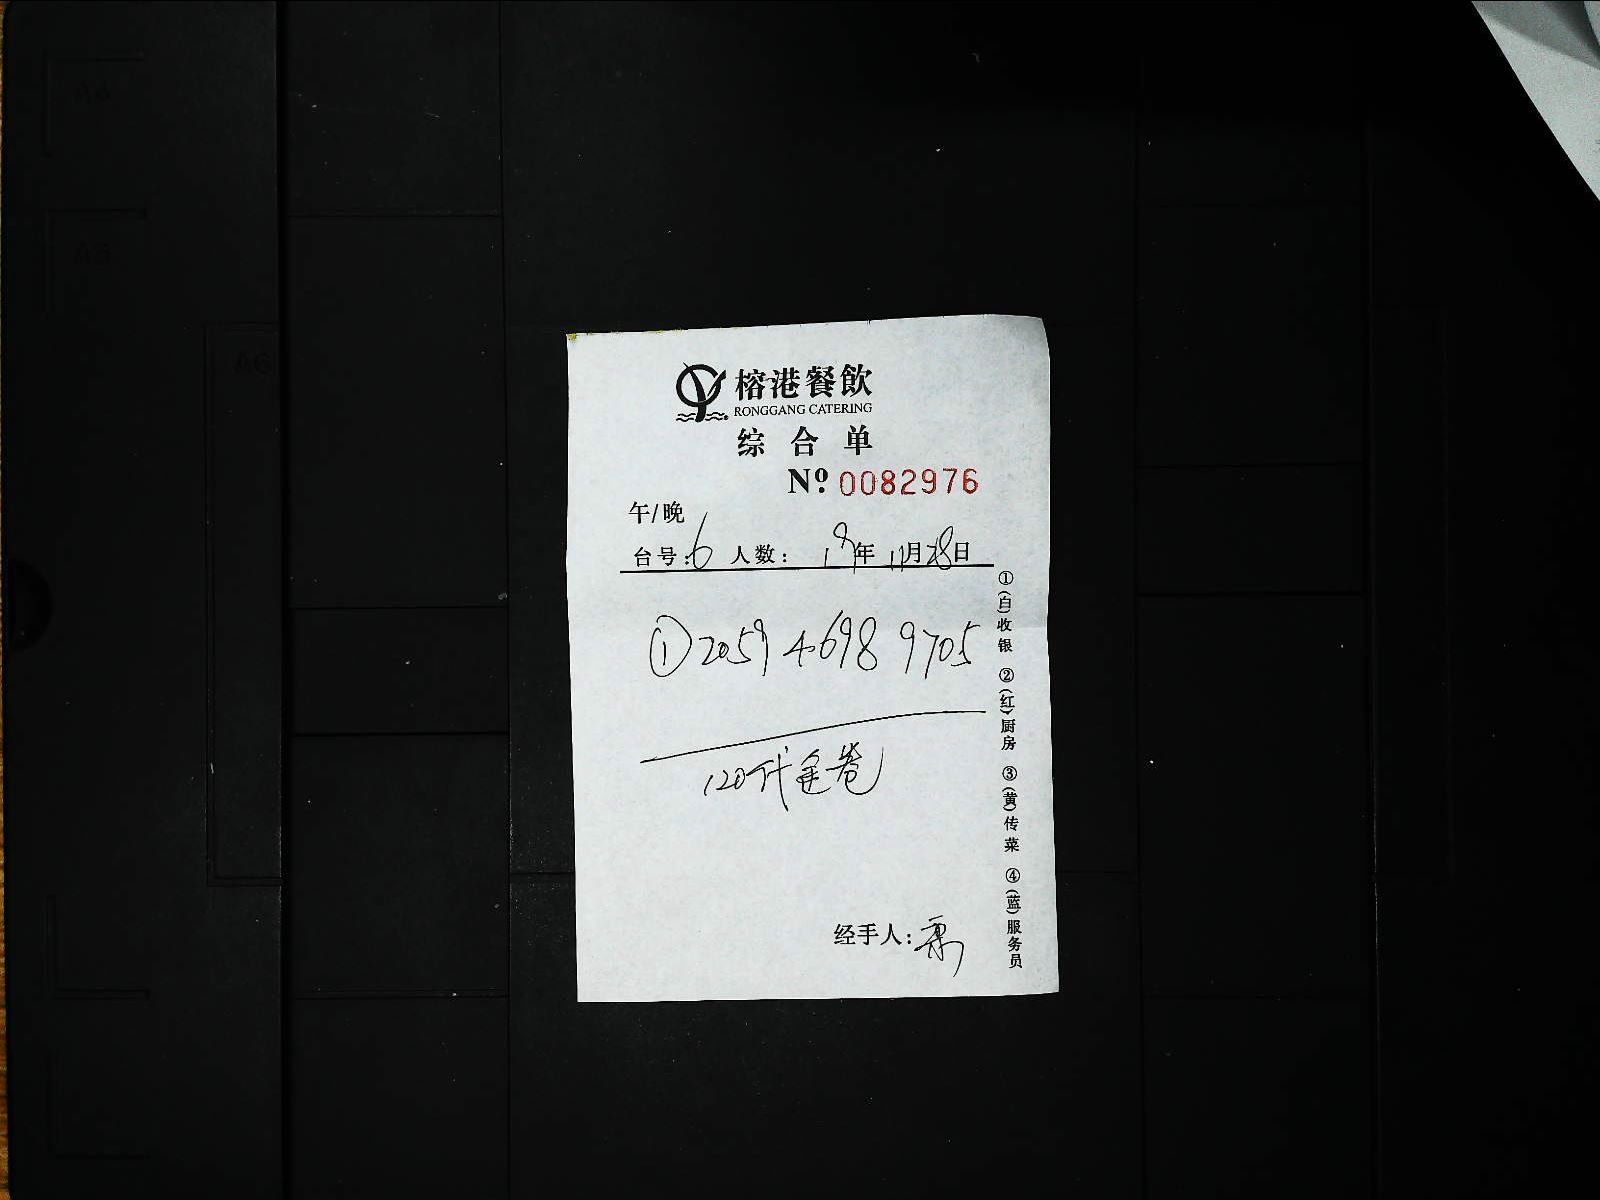 榕港餐飲
RONGGANG CATERING
综合单
Nº 0082976
午/晚
台号:6 人数: 19年11月28日
①2059 4698 9705
120代金卷
经手人:
①(白)收银 ②(红)厨房 ③(黄)传菜 ④(蓝)服务员